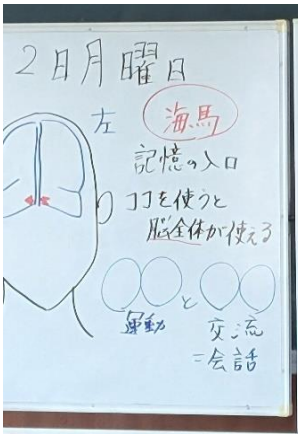 2日月曜日
左 海馬
記憶の入口
ココを使うと
脳全体が使える
運動 と 交流
=会話